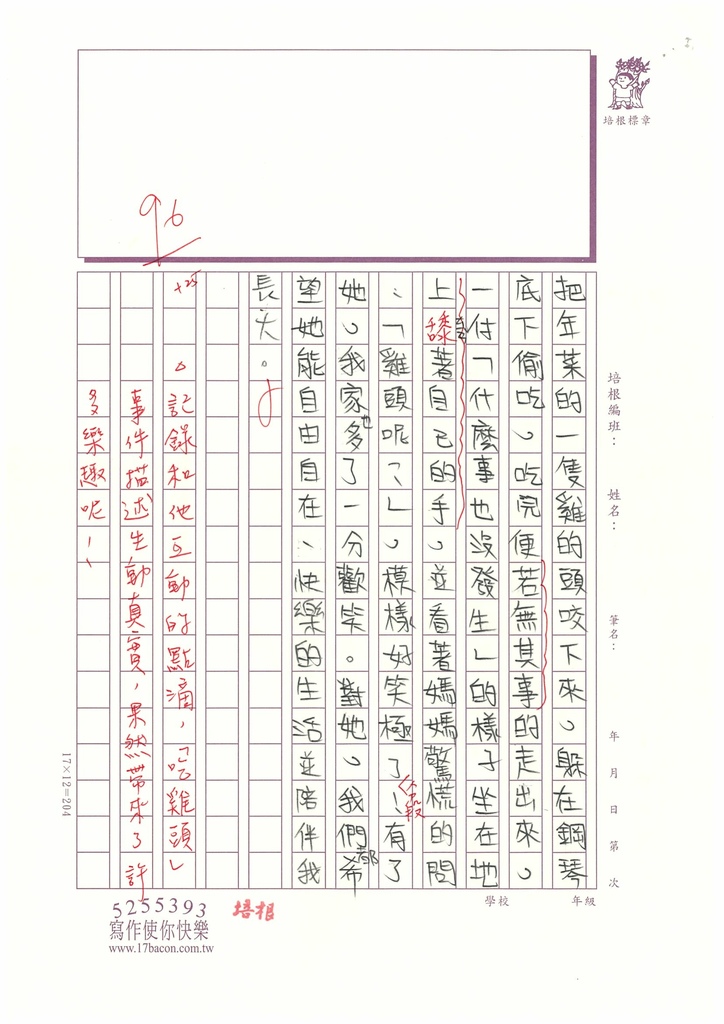 培根標章
96
+25
把年菜的一隻雞的頭咬下來，躲在鋼琴
底下偷吃，吃完便若無其事的走出來，
一付「什麼事也沒發生」的樣子坐在地
上舔著自己的手，並看著媽媽驚慌的問
：「雞頭呢？」，模樣好笑極了！有了
分段
她，我家也多了一分歡笑。對她，我們都希
望她能自由自在、快樂的生活並陪伴我
長大。
。記錄和他互動的點滴，「吃雞頭」
事件描述生動真實，果然帶來了許
多樂趣呢！
培根編班： 姓名： 筆名： 年 月 日 第 次
學校 年級
17×12=204
5255393 培根
寫作使你快樂
www.17bacon.com.tw